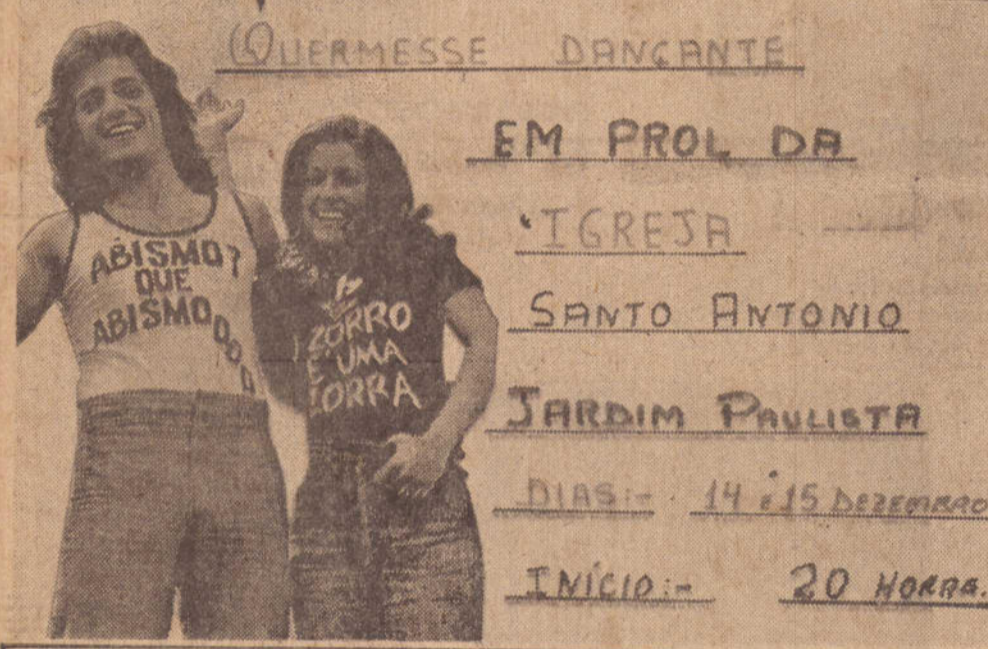 QUERMESSE DANÇANTE
EM PROL DA
IGREJA
SANTO ANTONIO
JARDIM PAULISTA
DIAS:- 14 e 15 DEZEMBRO
INÍCIO:- 20 HORAS.
ABISMO?
QUE
ABISMOOOOO
O ZORRO
É UMA
ZORRA